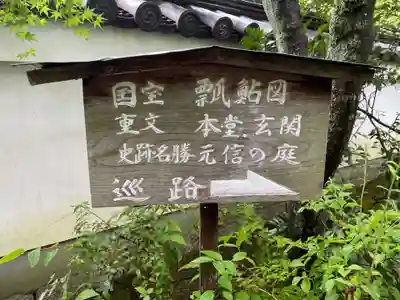 国宝 瓢鮎図
重文 本堂.玄関
史跡名勝 元信の庭
巡路 →